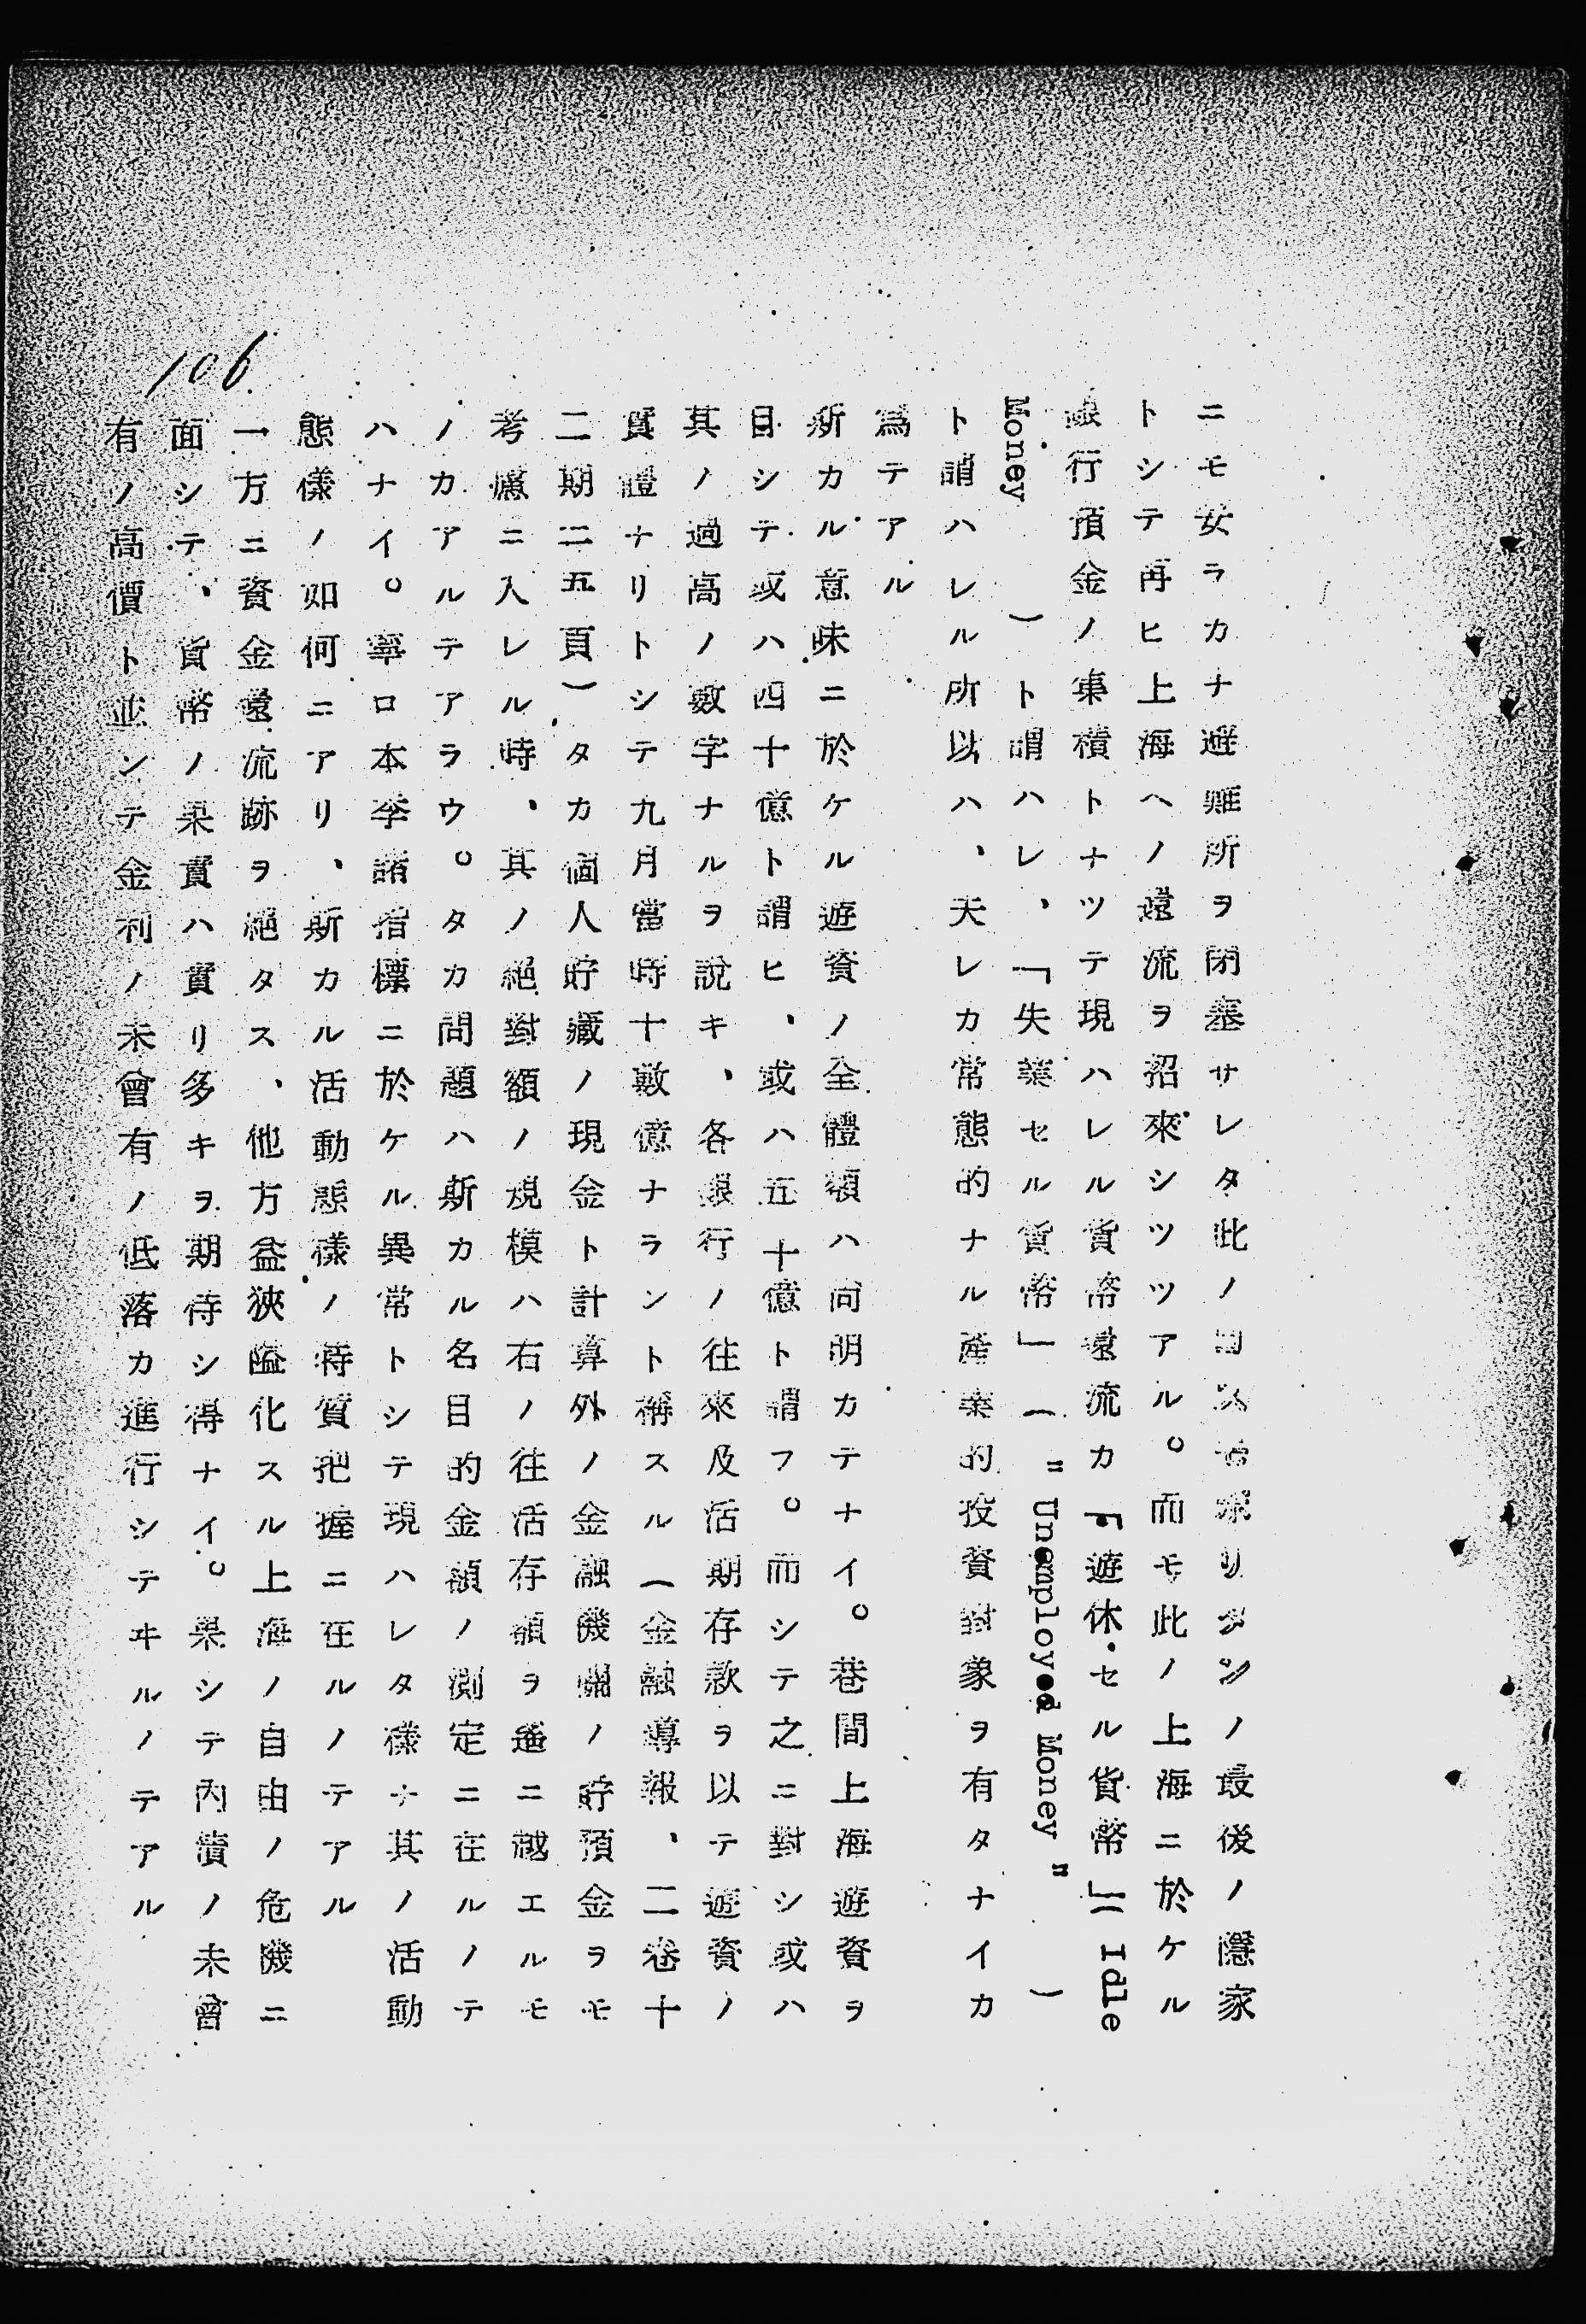 ニモ安ラカナ避難所ヲ閉塞サレタ此ノ リ ンノ最後ノ隱家
トシテ再ヒ上海ヘノ還流ヲ招來シツツアル。而モ此ノ上海ニ於ケル
銀行預金ノ集積トナツテ現ハレル貨幣還流カ『遊休セル貨幣』(Idle
Money )ト謂ハレ、「失業セル貨幣」("Unemployed Money")
ト謂ハレル所以ハ、夫レカ常態的ナル産業的投資對象ヲ有タナイカ
爲テアル
斯カル意味ニ於ケル遊資ノ全體額ハ尚明カテナイ。巷間上海遊資ヲ
目シテ或ハ四十億ト謂ヒ、或ハ五十億ト謂フ。而シテ之ニ對シ或ハ
其ノ過高ノ數字ナルヲ説キ、各銀行ノ往來及活期存款ヲ以テ遊資ノ
實體ナリトシテ九月當時十數億ナラント稱スル(金融導報、二卷十
二期二五頁)タカ個人貯藏ノ現金ト計算外ノ金融機關ノ貯預金ヲモ
考慮ニ入レル時、其ノ絕對額ノ規模ハ右ノ往活存額ヲ遙ニ越エルモ
ノカアルテアラウ。タカ問題ハ斯カル名目的金額ノ測定ニ在ルノテ
ハナイ。寧ロ本季諸指標ニ於ケル異常トシテ現ハレタ樣ナ其ノ活動
態樣ノ如何ニアリ、斯カル活動態樣ノ特質把握ニ在ルノテアル
一方ニ資金還流跡ヲ絕タス、他方益狹隘化スル上海ノ自由ノ危機ニ
面シテ、貨幣ノ果實ハ實リ多キヲ期待シ得ナイ。果シテ內債ノ未曾
有ノ高價ト並ンテ金利ノ未曾有ノ低落カ進行シテヰルノテアル
106